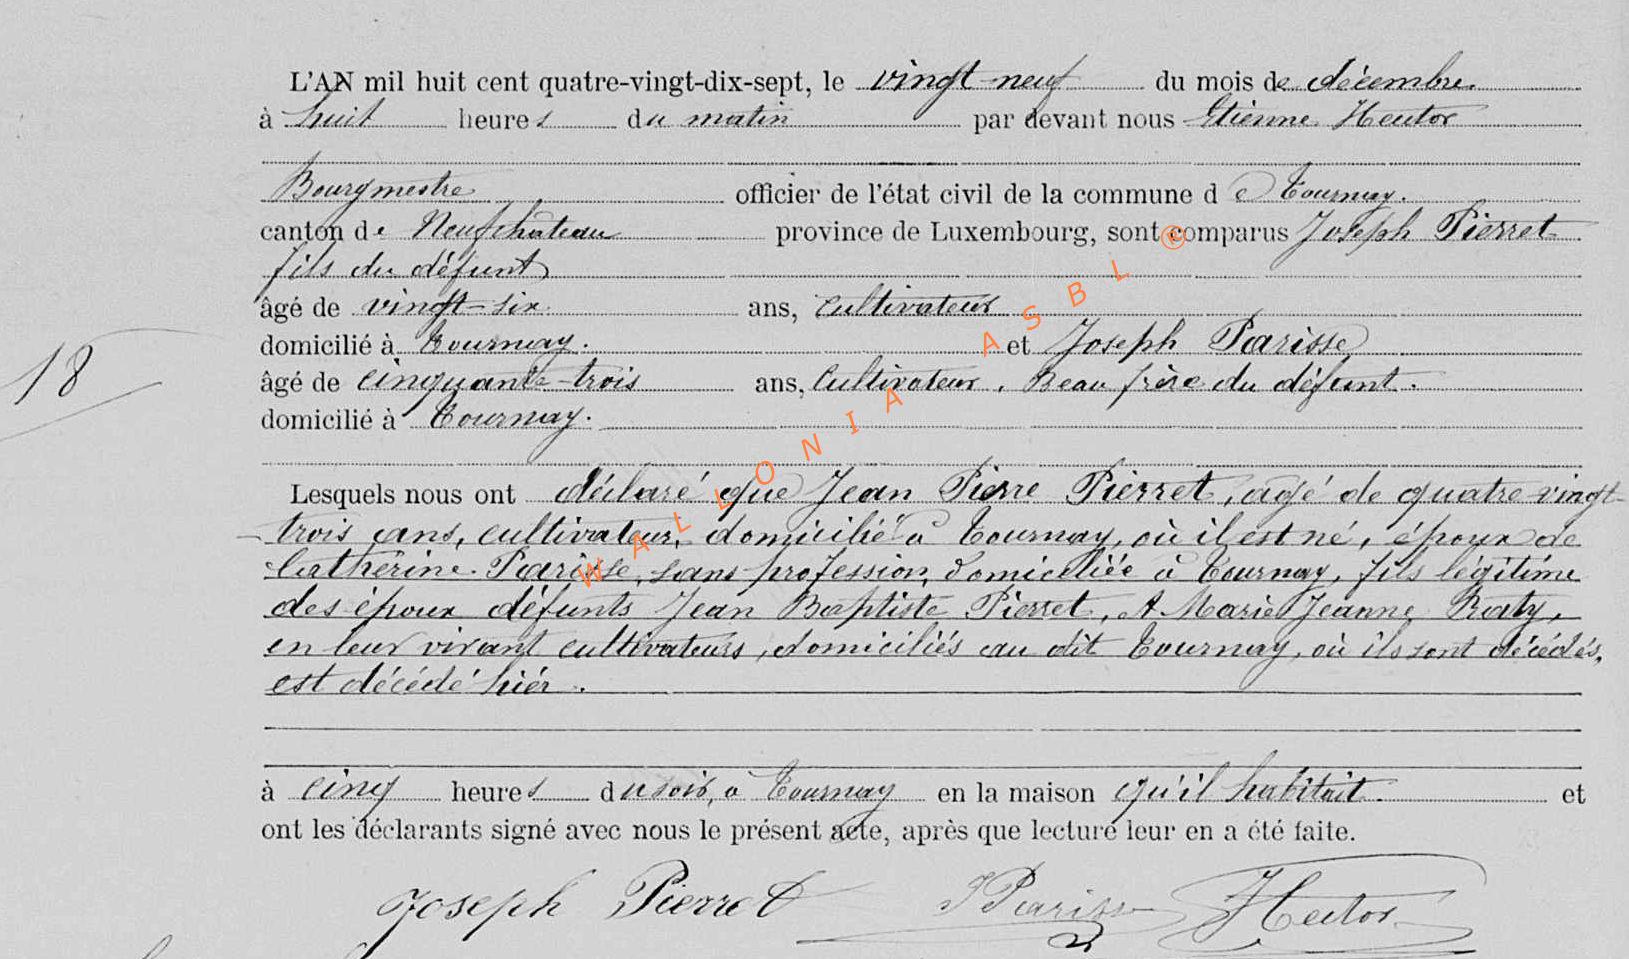 L'AN mil huit cent quatre-vingt-dix-sept, le vingt-neuf du mois de décembre.
à huit heures du matin par devant nous Etienne Hector
Bourgmestre officier de l'état civil de la commune de Tournay.
canton de Neufchâteau province de Luxembourg, sont comparus Joseph Pierret
fils du défunt
âgé de vingt-six ans, cultivateur
domicilié à Tournay. et Joseph Parisse,
âgé de cinquante-trois ans, Cultivateur, Beau frère du défunt.
domicilié à Tournay.
18
Lesquels nous ont déclaré que Jean Pierre Pierret, agé de quatre-vingt-
trois ans, cultivateur, domicilié à Tournay, où il est né, époux de
Catherine Parisse, sans profession, domiciliée à Tournay, fils légitime
des époux défunts Jean Baptiste Pierret, & Marie Jeanne Raty,
en leur vivant cultivateurs, domiciliés au dit Tournay, où ils sont décédés,
est décédé hier.
à cinq heures du soir, à Tournay en la maison qu'il habitait. et
ont les déclarants signé avec nous le présent acte, après que lecture leur en a été faite.
Joseph Pierret J Parisse Hector
WALLONIA ASBL ®